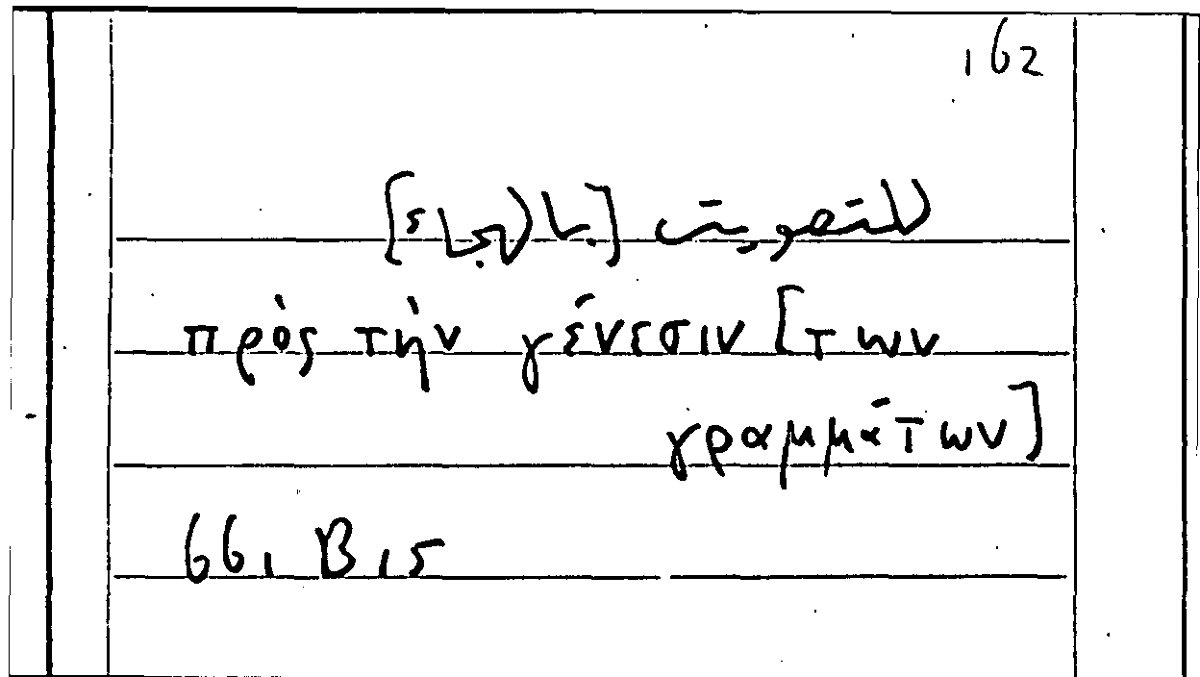 162
للتصويت [بالهجاء]
πρὸς τὴν γένεσιν [των
γραμμάτων]
66, B 15